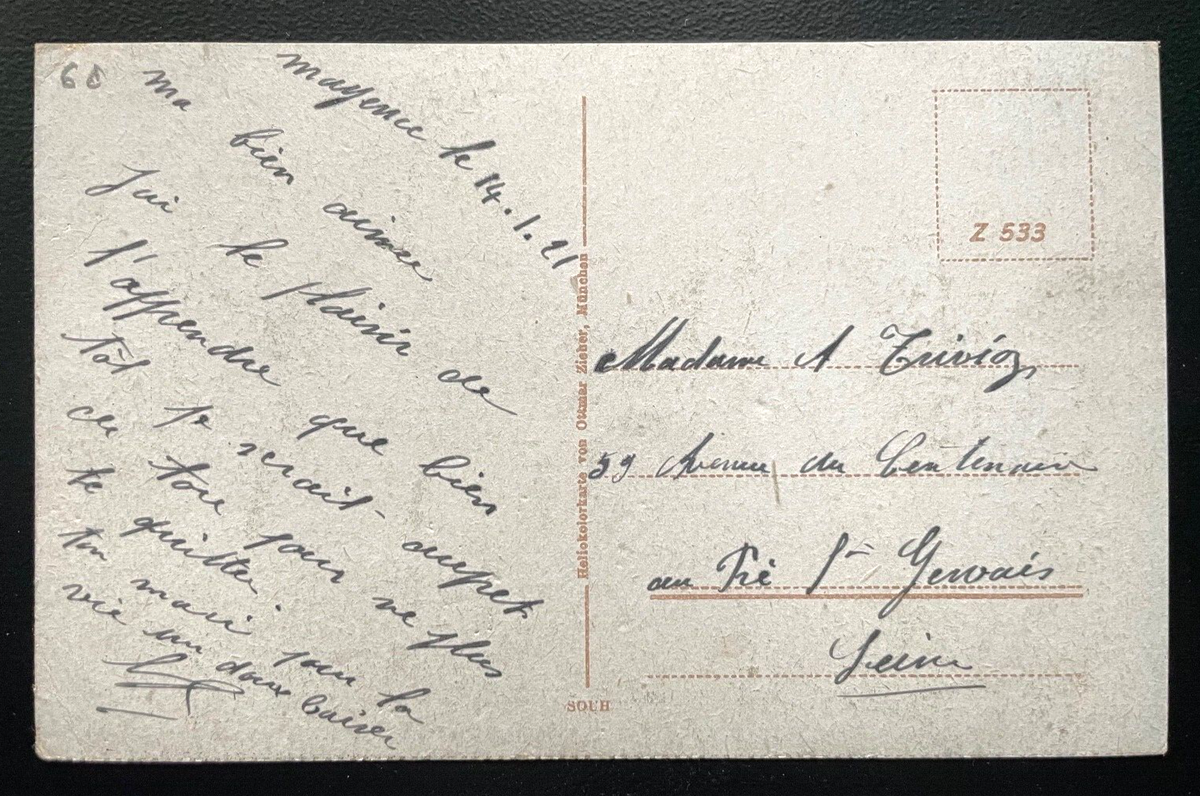 68
Mayence le 14.1.21
Ma bien aimee
J'ai le plaisir de
t'apprendre que bien
tôt je serait aupret
de toie pour ne plus
te quitter.
ton mari pour la
vie un doux baiser
Madame A Trivioz
59 Avenue du Centenaire
au Pré St Gervais
Seine
Z 533
Heliokolorkarte von Ottmar Zieher, München
SOUH